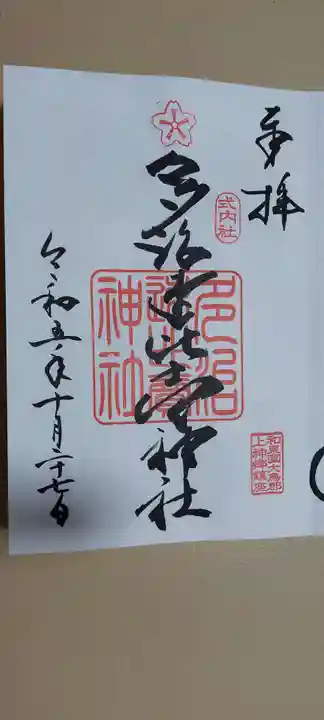 奉拝
式内社
和泉國大鳥郡
上神郷鎮座
多治速比売神社
多治
速比賣
神社
令和五年十月二十七日